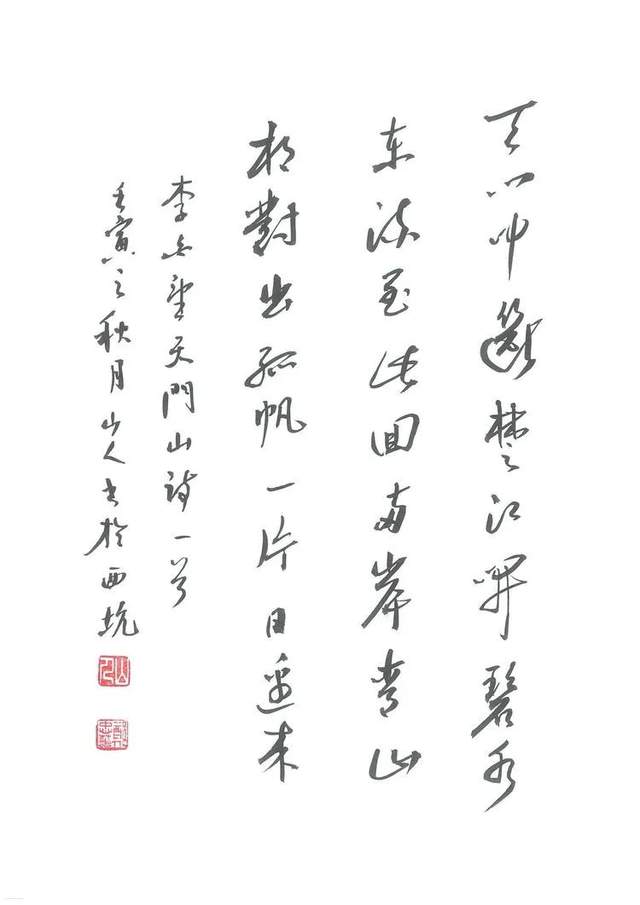 天门中斷楚江開碧水
东流至此回两岸青山
相對出孤帆一片日邊来
李白望天門山詩一首
壬寅之秋月山人书於西坑
山人